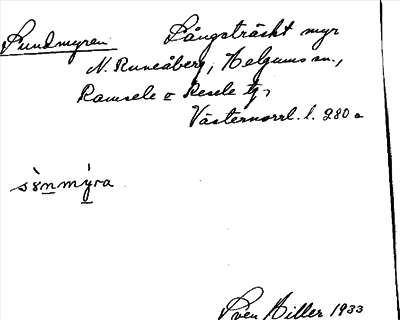 Sundmyren Långsträckt myr
N. Runsåberg, Helgums sn.,
Ramsele o Resele tg,
Västernorrl. l. 280 a
sʉ̀nmýra
Sven Hiller 1933